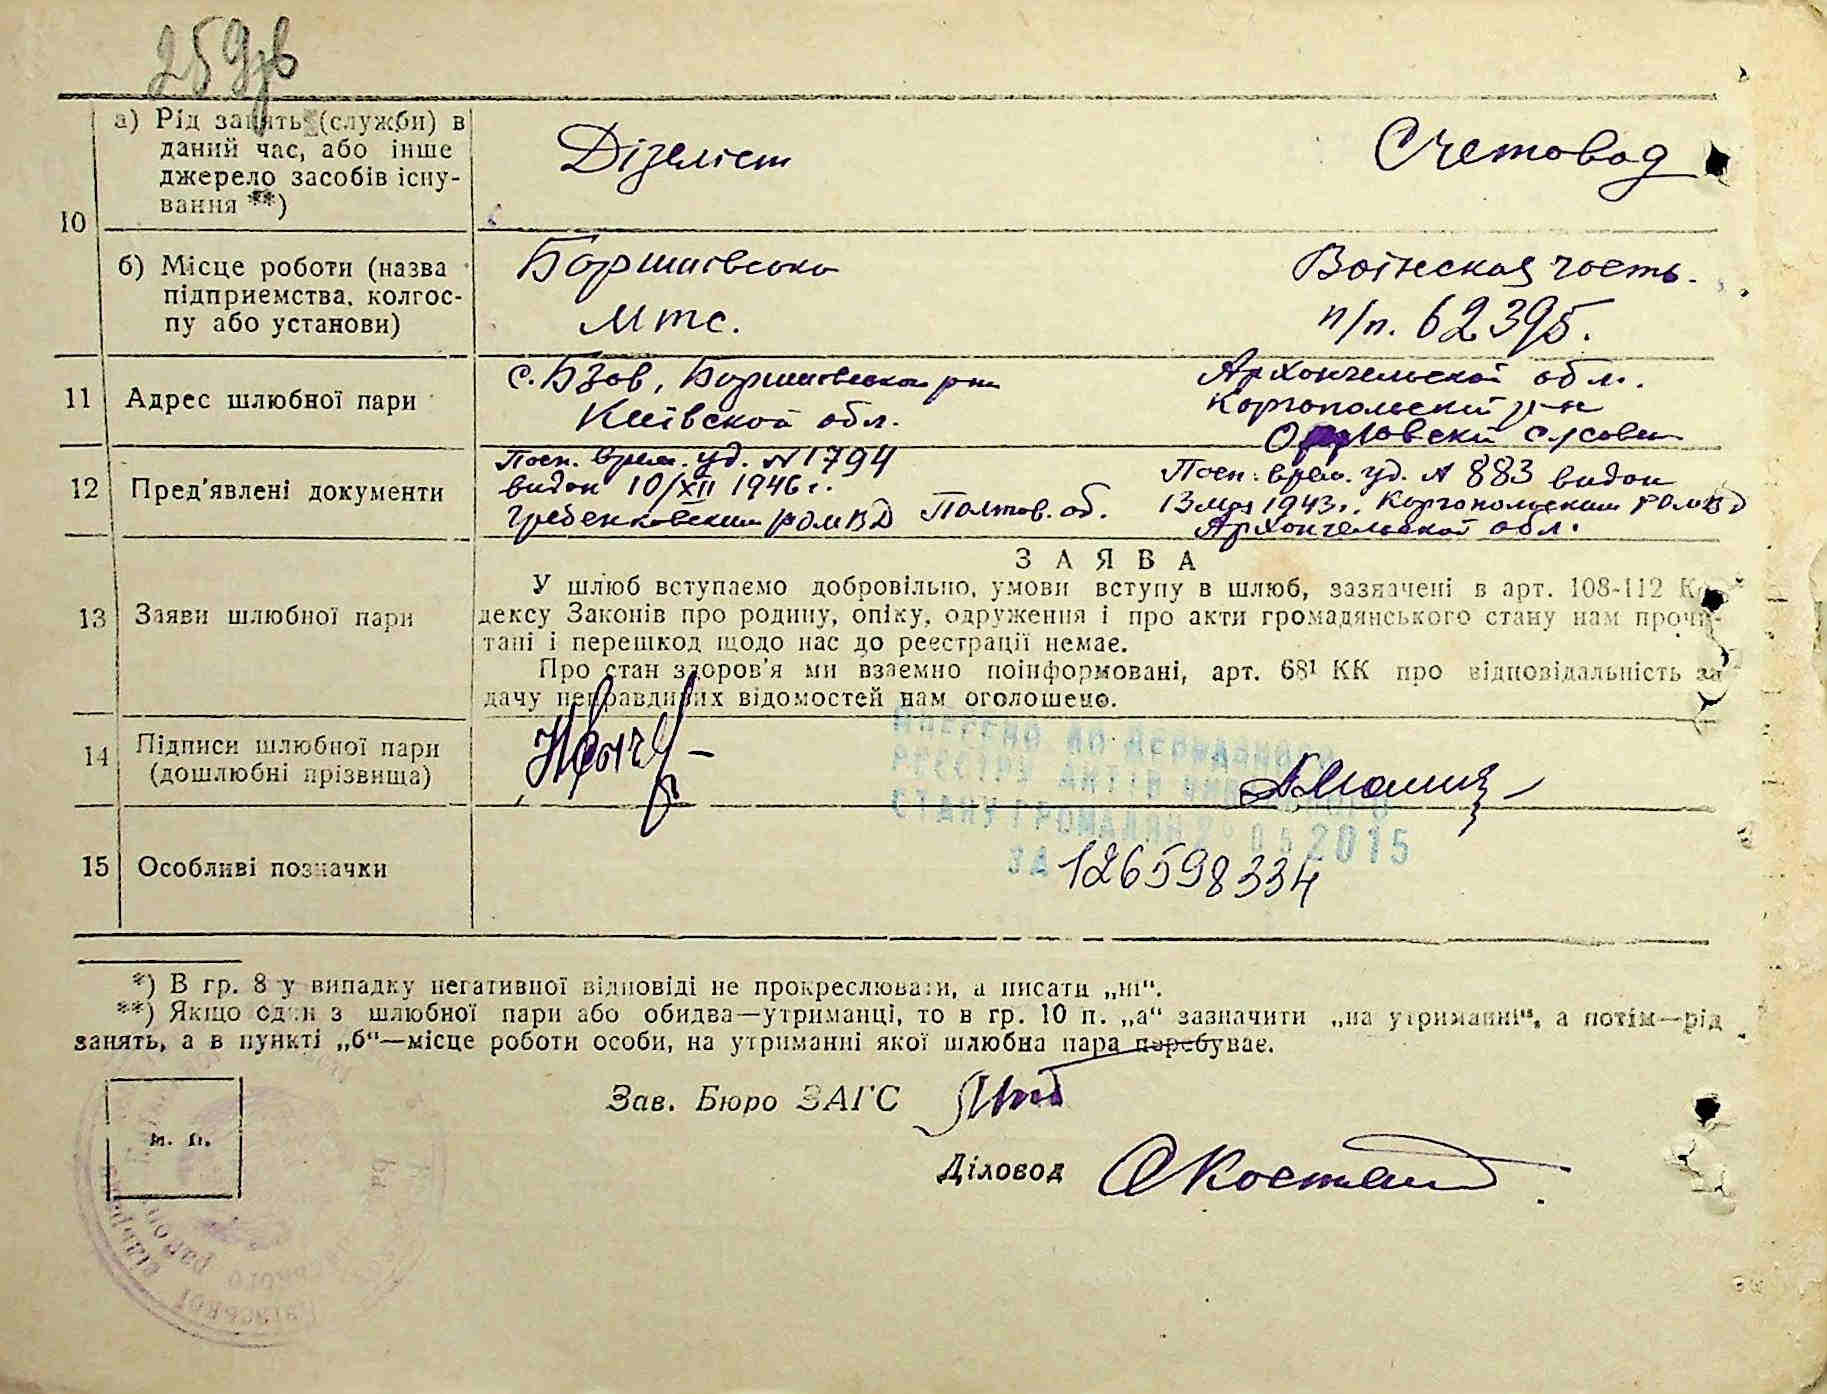 259зв
10
а) Рід занять (служби) в
даний час, або інше
джерело засобів існу-
вання **)
Дізеліст
Счетовод
б) Місце роботи (назва
підприємства, колгос-
пу або установи)
Боришівсько
Мтс.
Воінская часть.
п/п. 62395.
11
Адрес шлюбної пари
с. Бзов, Боришівської р-ни
Київской обл.
Архонгельской обл.
Коргопольский р-н
сусовет
12
Пред'явлені документи
Посп. врем. уд. № 1794
видан 10/XII 1946 г.
Гребенковским РОМВД Полтов. об.
Посп. врем. уд. № 883 видан
13 мая 1943 г. Коргопольским РОМВД
Архонгельской обл.
13
Заяви шлюбної пари
ЗАЯВА
У шлюб вступаємо добровільно, умови вступу в шлюб, зазначені в арт. 108-112 Ко-
дексу Законів про родину, опіку, одруження і про акти громадянського стану нам прочи-
тані і перешкод щодо нас до реєстрації немає.
Про стан здоров'я ми взаємно поінформовані, арт. 68¹ КК про відповідальність за
дачу неправдивих відомостей нам оголошено.
14
Підписи шлюбної пари
(дошлюбні прізвища)
ВНЕСЕНО ДО ДЕРЖАВНОГО
РЕЄСТРУ АКТІВ ЦИВІЛЬНОГО
СТАНУ ГРОМАДЯН 2 05 2015
ЗА 126598334
15
Особливі позначки
*) В гр. 8 у випадку негативної відповіді не прокреслювати, а писати „ні“.
**) Якщо один з шлюбної пари або обидва—утриманці, то в гр. 10 п. „а“ зазначити „на утриманні“, а потім—рід
занять, а в пункті „б“—місце роботи особи, на утриманні якої шлюбна пара перебуває.
м. п.
Зав. Бюро ЗАГС
Діловод